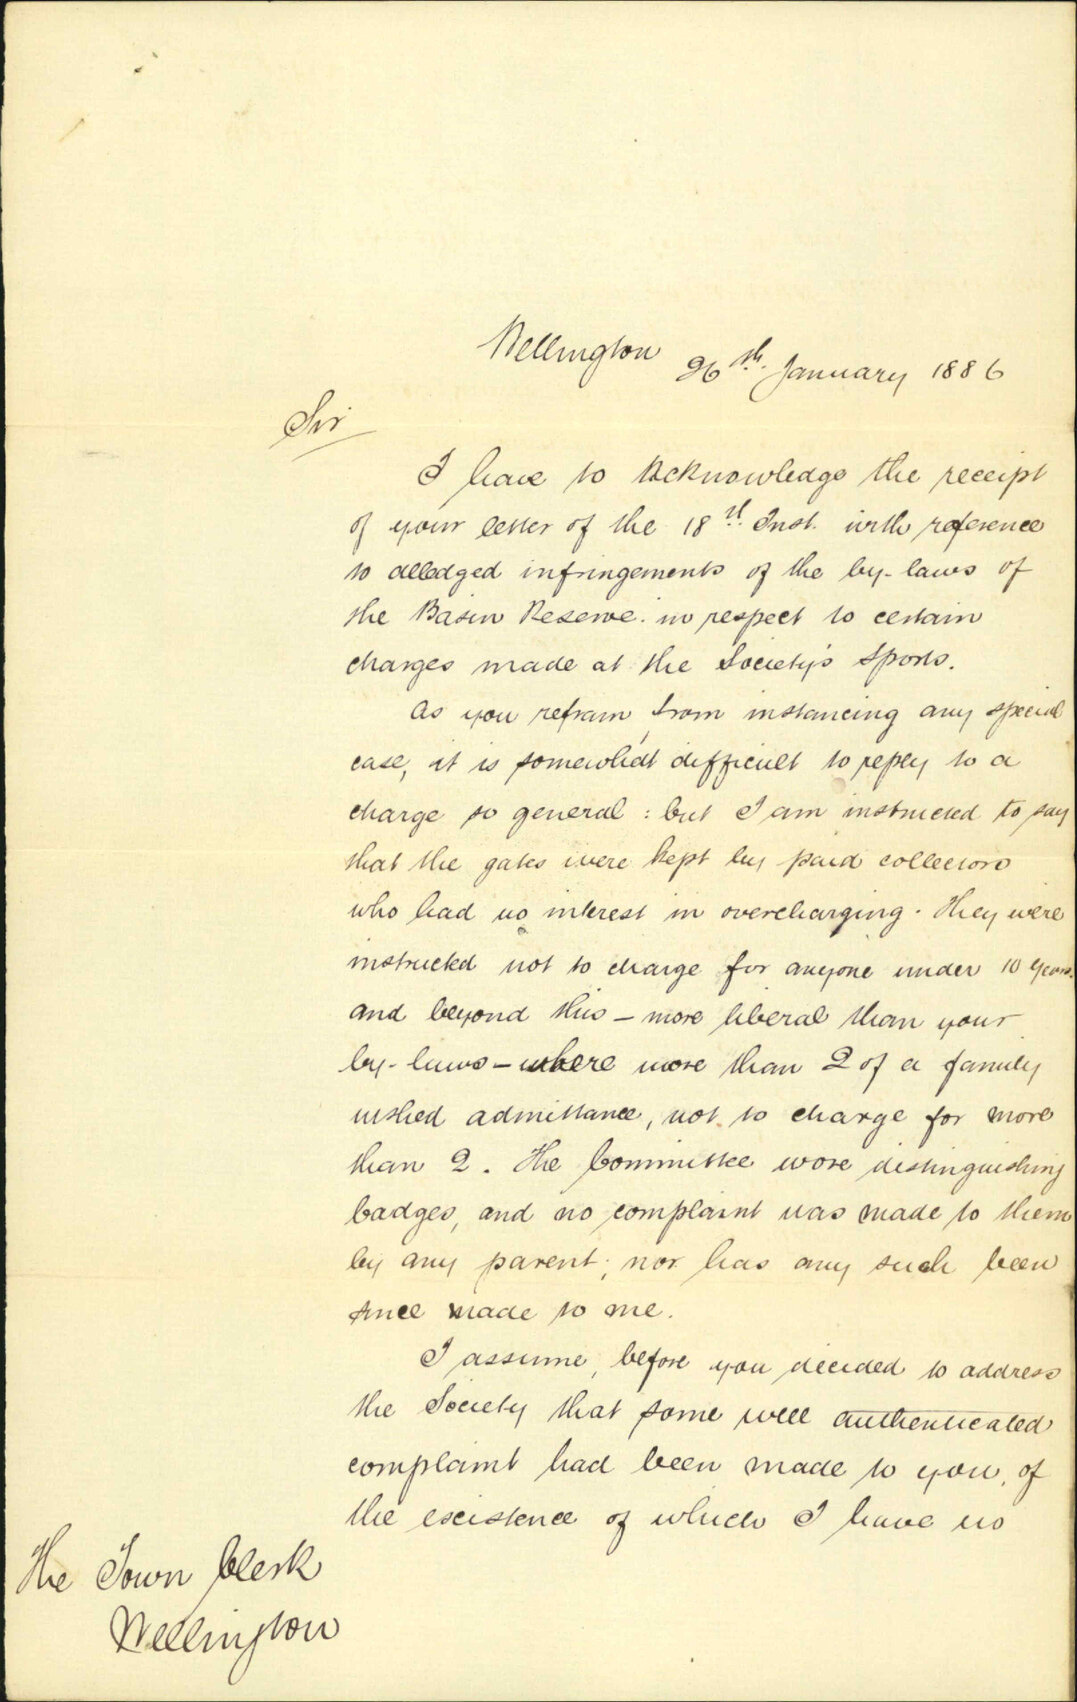 Wellington 26th. January 1886
Sir
I have to Acknowledge the receipt
of your letter of the 18th. Inst. with reference
to alledged infringements of the by-laws of
the Basin Reserve. in respect to certain
charges made at the Society's Sports.
As you refrain, from instancing any special
case, it is somewhat difficult to reply to a
charge so general : but I am instructed to say
that the gates were kept by paid collectors
who had no interest in overcharging. They were
instructed not to charge for anyone under 10 years.
and beyond this - more liberal than your
by-laws - where more than 2 of a family
wished admittance, not to charge for more
than 2. The Committee wore distinguishing
badges, and no complaint was made to them
by any parent; nor has any such been
since made to me.
I assume, before you decided to address
the Society that some well authenticated
complaint had been made to you, of
the existence of which I have no
The Town Clerk
Wellington